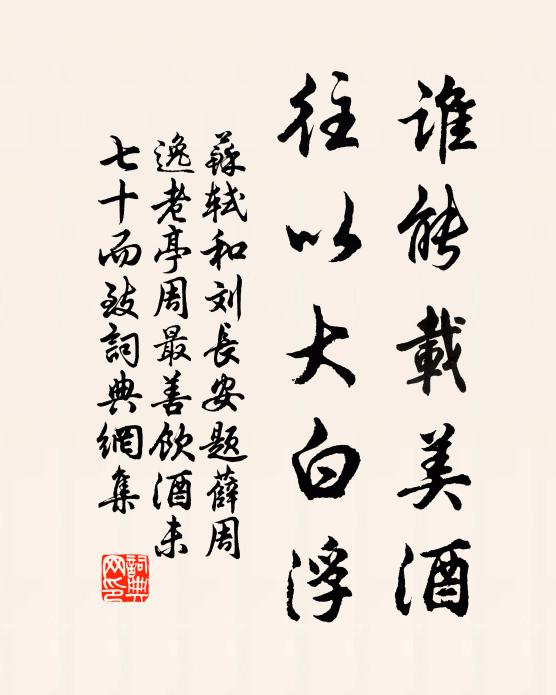 誰能載美酒
往以大白浮
蘇軾和刘長安題薛周
逸老亭周最善飲酒未
七十而致詞典網集
詞典网印